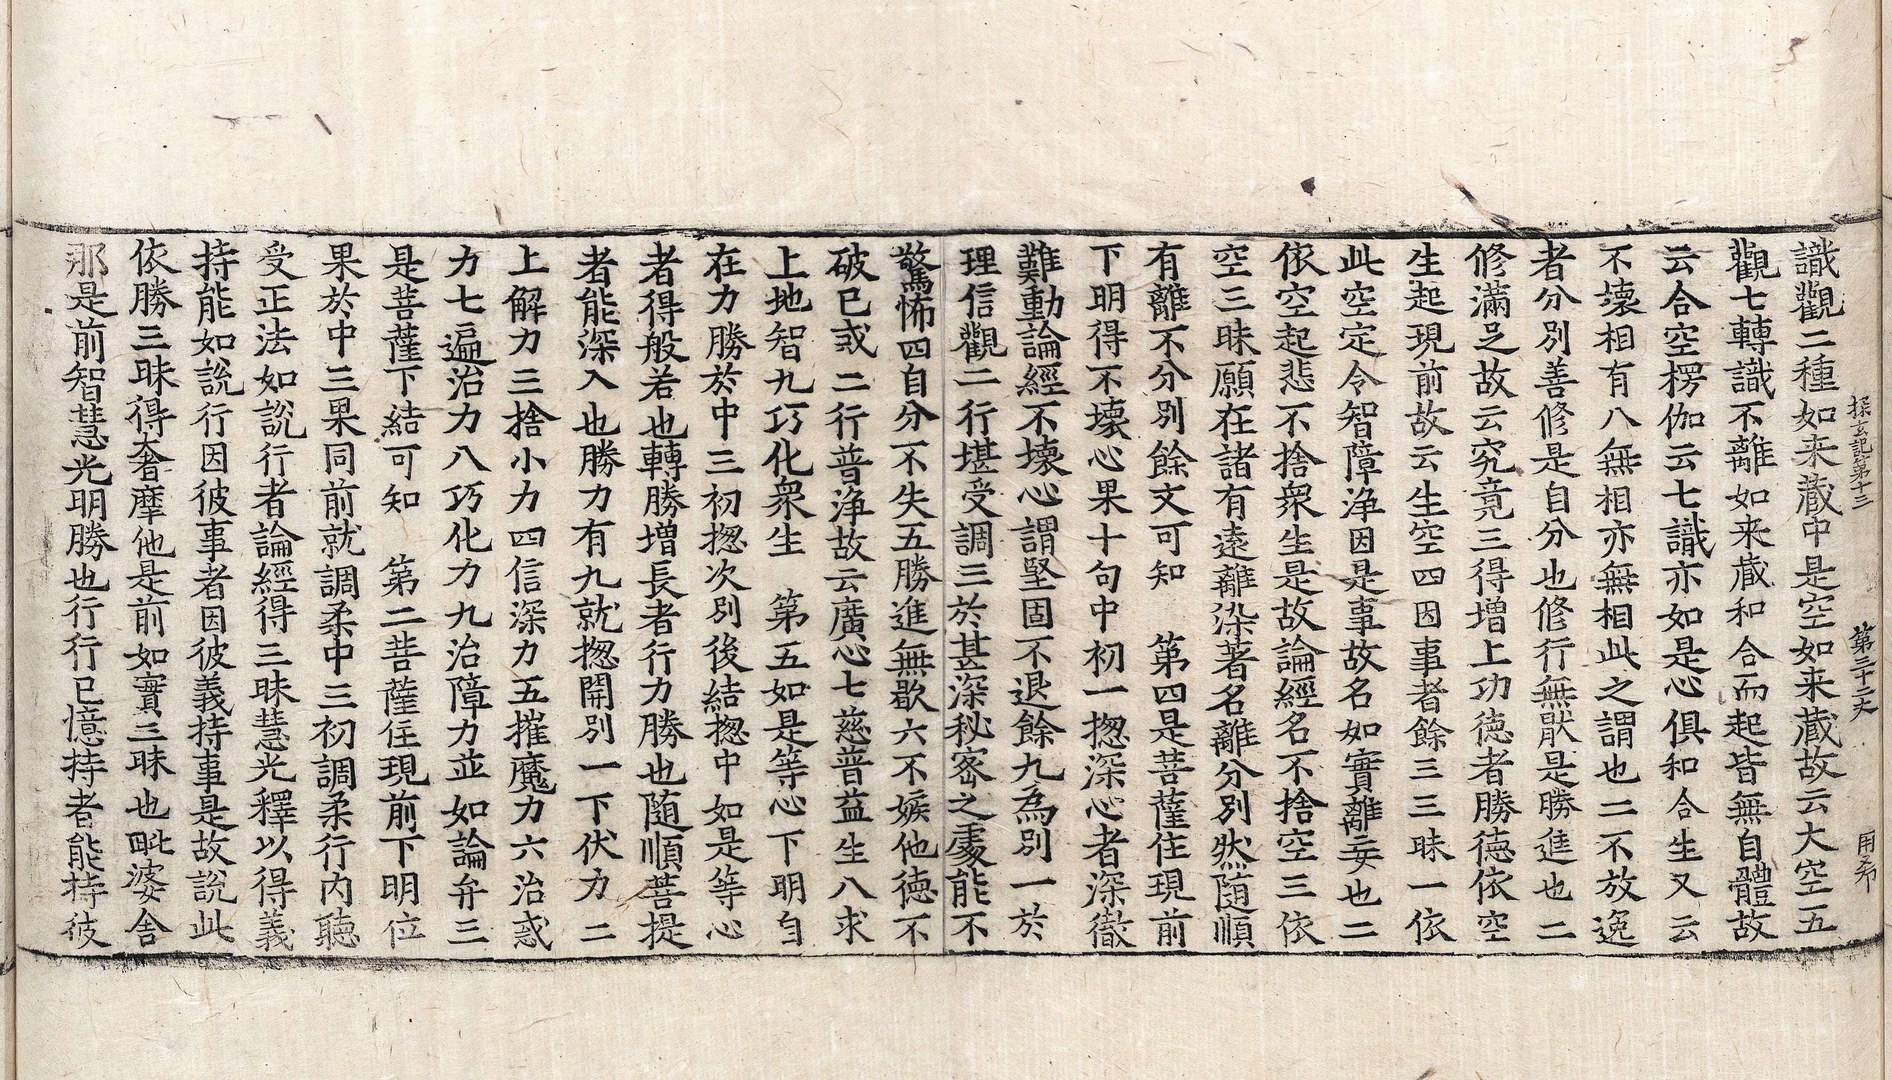 探玄記第十三　第三十二丈　用希
識觀二種如来蔵中是空如来蔵故云大空五
觀七轉識不離如来蔵和合而起皆無自體故
云合空楞伽云七識亦如是心俱和合生又云
不壊相有八無相亦無相此之謂也二不放逸
者分別善修是自分也修行無厭是勝進也二
修滿足故云究竟三得增上功徳者勝徳依空
生起現前故云生空四因事者餘三三昧一依
此空定令智障浄因是事故名如實離妄也二
依空起悲不捨衆生是故論經名不捨空三依
空三昧願在諸有遠離染著名離分別然随順
有離不分別餘文可知　第四是菩薩住現前
下明得不壊心果十句中初一揔深心者深徹
難動論經不壊心謂堅固不退餘九為別一於
理信觀二行堪受調三於甚深秘密之處能不
驚怖四自分不失五勝進無歇六不嫉他徳不
破已或二行普浄故云廣心七慈普益生八求
上地智九巧化衆生　第五如是等心下明自
在力勝於中三初揔次別後結揔中如是等心
者得般若也轉勝增長者行力勝也随順菩提
者能深入也勝力有九就揔開別一下伏力二
上解力三捨小力四信深力五摧魔力六治惑
力七遍治力八巧化力九治障力並如論弁三
是菩薩下結可知　第二菩薩住現前下明位
果於中三果同前就調柔中三初調柔行内聽
受正法如說行者論經得三昧慧光釋以得義
持能如說行因彼事者因彼義持事是故說此
依勝三昧得奢摩他是前如實三昧也毗婆舍
那是前智慧光明勝也行行已憶持者能持彼